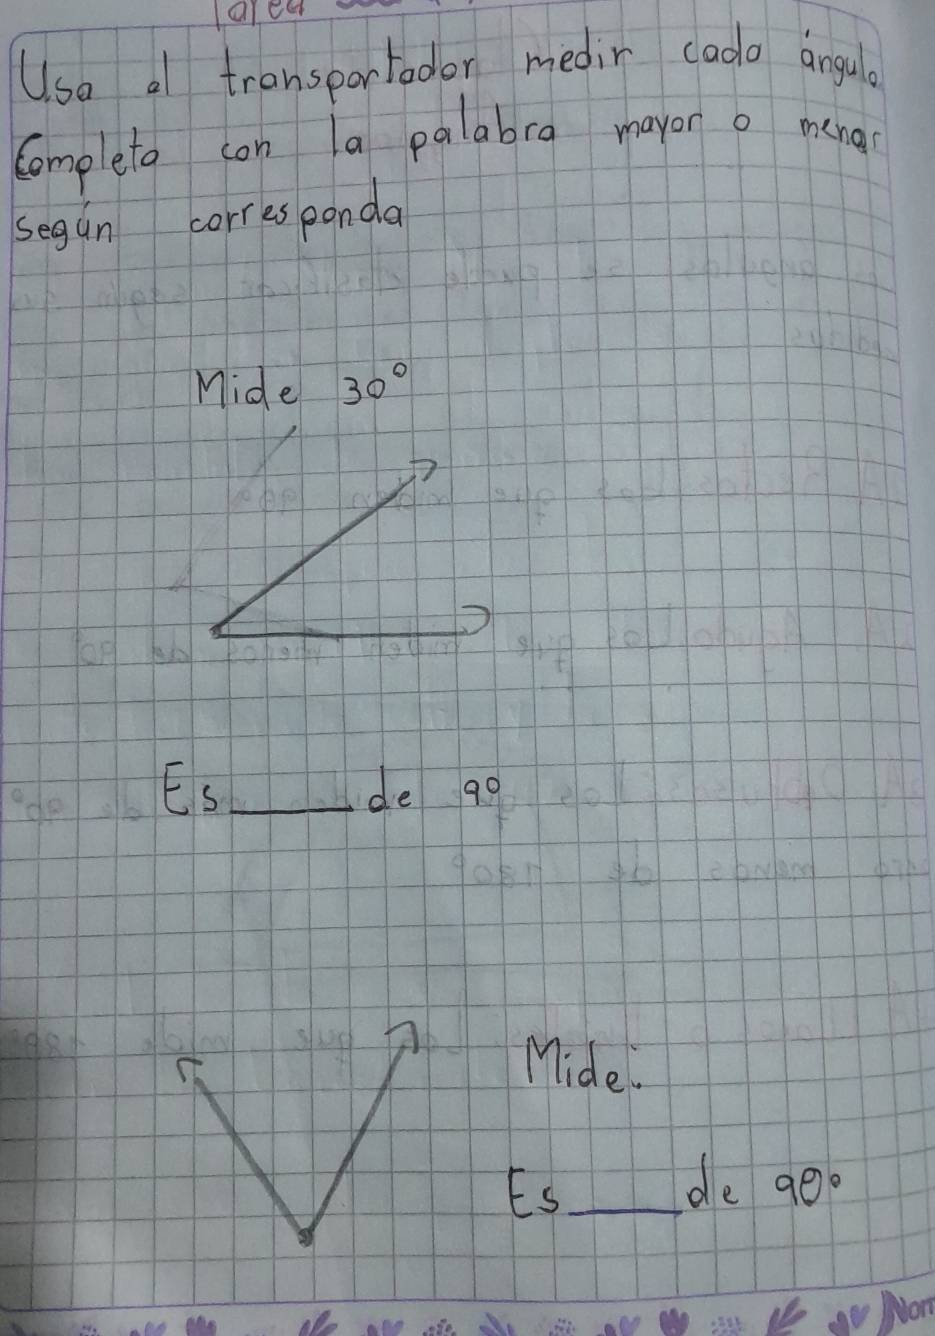 Tarea
Usa el transportador medir cada ángulo
Completa con la palabra mayor o menor
según corresponda
Mide 30°
Es____de 9°
Mide:
Es____de 90°
Nom